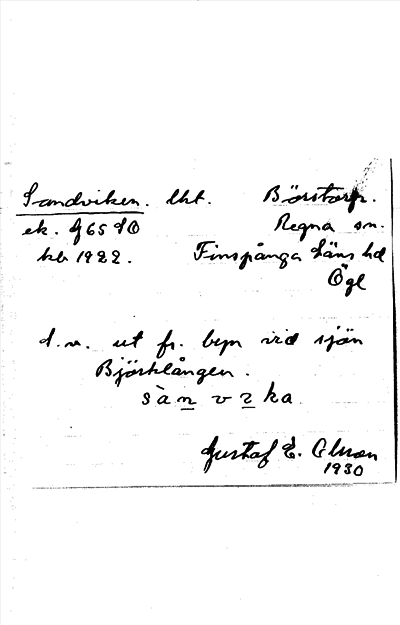 Sandviken. lht. Börstorp.
ek. J65 SO Regna sn.
kb 1922. Finspånga läns hd
Ögl
d.v. ut fr. byn vid sjön
Björklången.
sàn v ka
Gustaf E. Olsson
1930